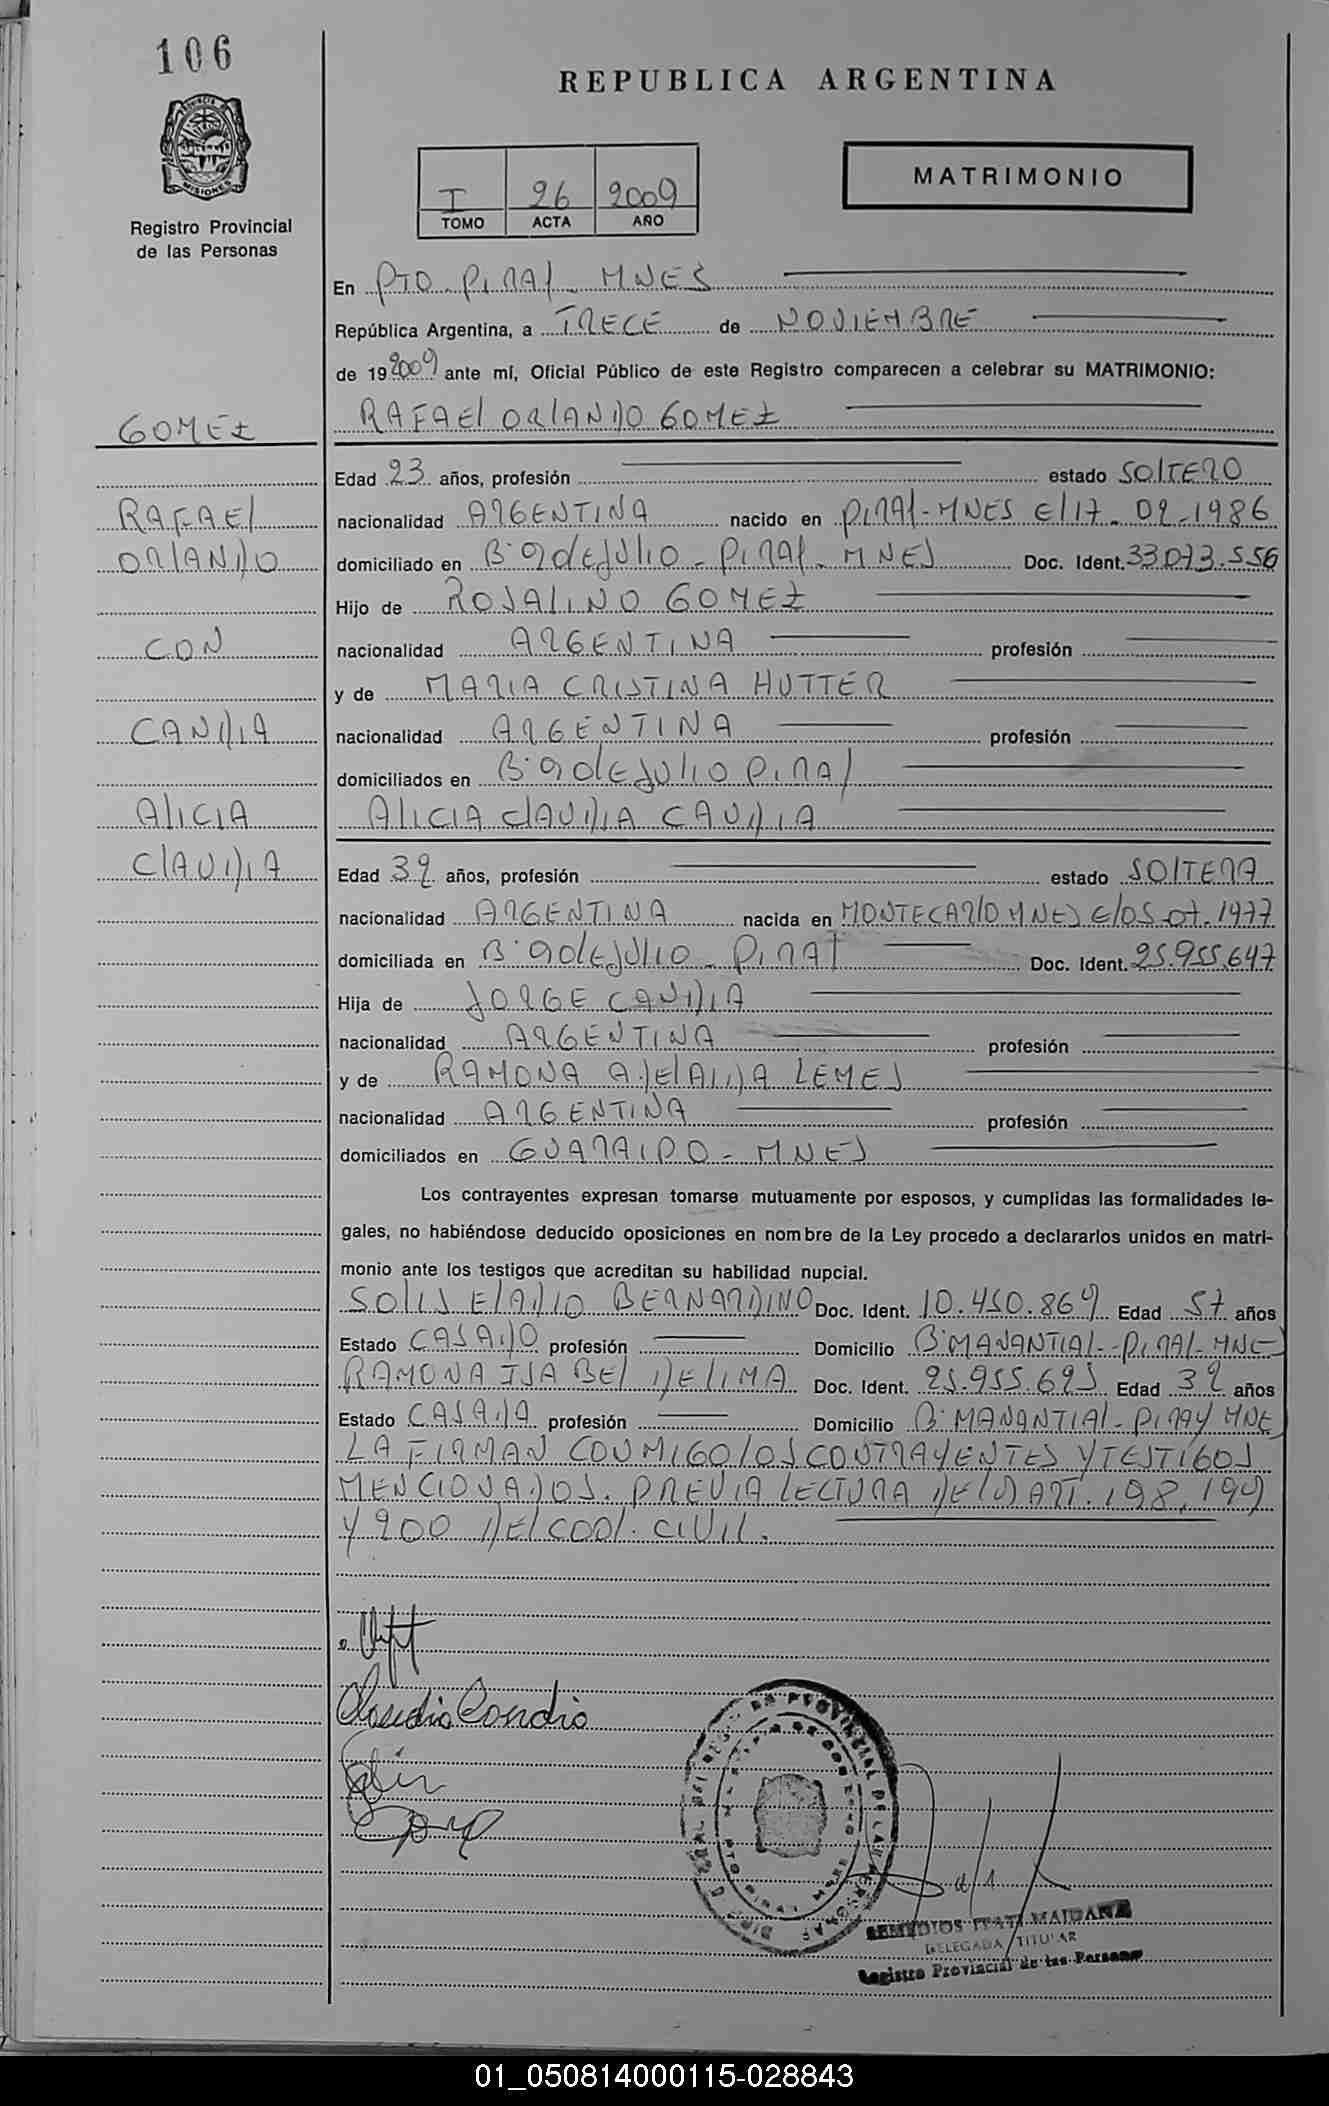 106
REPUBLICA ARGENTINA
MATRIMONIO
I 26 2009
TOMO ACTA AÑO
PROVINCIA DE MISIONES
Registro Provincial
de las Personas
En PTO. PIRAY - MNES
República Argentina, a TRECE de NOVIEMBRE
de 19 2009 ante mí, Oficial Público de este Registro comparecen a celebrar su MATRIMONIO:
RAFAEL ORLANDO GOMEZ
GOMEZ
RAFAEL
ORLANDO
CON
CANDIA
ALICIA
CLAUDIA
Edad 23 años, profesión estado SOLTERO
nacionalidad ARGENTINA nacido en PIRAY-MNES EL 17-02-1986
domiciliado en B° 9 DE JULIO - PIRAY - MNES Doc. Ident. 33.073.556
Hijo de ROSALINO GOMEZ
nacionalidad ARGENTINA profesión
y de MARIA CRISTINA HUTTER
nacionalidad ARGENTINA profesión
domiciliados en B° 9 DE JULIO PIRAY
ALICIA CLAUDIA CANDIA
Edad 32 años, profesión estado SOLTERA
nacionalidad ARGENTINA nacida en MONTECARLO MNES EL 05-07-1977
domiciliada en B° 9 DE JULIO - PIRAY Doc. Ident. 25.955.647
Hija de JORGE CANDIA
nacionalidad ARGENTINA profesión
y de RAMONA ADELAIDA LEMES
nacionalidad ARGENTINA profesión
domiciliados en GUARAIPO - MNES
Los contrayentes expresan tomarse mutuamente por esposos, y cumplidas las formalidades le-
gales, no habiéndose deducido oposiciones en nombre de la Ley procedo a declararlos unidos en matri-
monio ante los testigos que acreditan su habilidad nupcial.
SOLIS ELADIO BERNARDINO Doc. Ident. 10.450.869 Edad 57 años
Estado CASADO profesión Domicilio B° MANANTIAL - PIRAY - MNES
RAMONA ISABEL DE LIMA Doc. Ident. 25.955.695 Edad 32 años
Estado CASADA profesión Domicilio B° MANANTIAL - PIRAY MNE
LA FIRMAN CONMIGO LOS CONTRAYENTES Y TESTIGOS
MENCIONADOS. PREVIA LECTURA DE LOS ART. 198, 199
Y 200 DEL COD. CIVIL.
Claudia Candia
REMEDIOS ITATI MAIDANA
DELEGADA TITULAR
Registro Provincial de las Personas
01_050814000115-028843